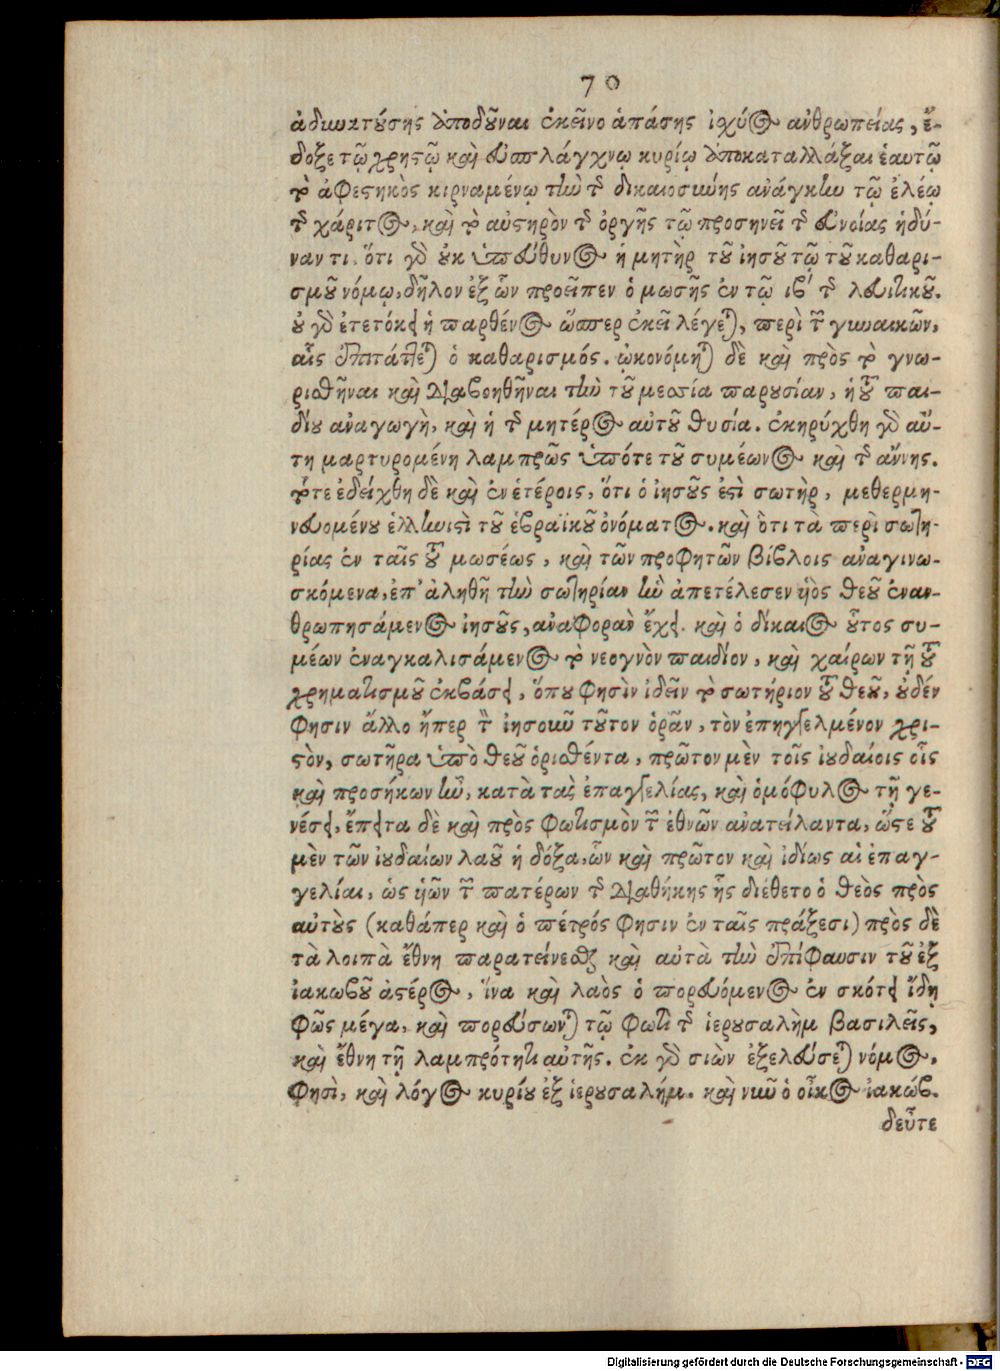 70
ἀδυνατούσης ἀποδοῦναι ἐκεῖνο ἁπάσης ἰσχύος ἀνθρωπείας, ἔ-
δοξε τῷ χρηστῷ καὶ εὐσπλάγχνῳ κυρίῳ ἀποκαταλλάξαι ἑαυτῷ
τὸ ἀφεστηκὸς κιρναμένῳ τὴν τῆς δικαιοσύνης ἀνάγκην τῷ ἐλέῳ
τῆς χάριτος, καὶ τὸ αὐστηρὸν τῆς ὀργῆς τῷ προσηνεῖ τῆς εὐνοίας ἡδύ-
ναντι. ὅτι γὰρ οὐκ ὑπεύθυνος ἡ μητὴρ τοῦ ἰησοῦ τῷ τοῦ καθαρι-
σμοῦ νόμῳ, δῆλον ἐξ ὧν προεῖπεν ὁ μωσῆς ἐν τῷ ιβ´ τῆς λευιτικοῦ.
οὐ γὰρ ἐτετόκει ἡ παρθένος ὥσπερ ἐκεῖ λέγεται, περὶ τῶν γυναικῶν,
αἷς ἐπιτάττεται ὁ καθαρισμός. ᾠκονόμηται δὲ καὶ πρὸς τὸ γνω-
ρισθῆναι καὶ διαβοηθῆναι τὴν τοῦ μεσσία παρουσίαν, ἡ τοῦ παι-
δίου ἀναγωγὴ, καὶ ἡ τῆς μητέρος αὐτοῦ θυσία. ἐκηρύχθη γὰρ αὕ-
τη μαρτυρομένη λαμπρῶς ὑπό τε τοῦ συμέωνος καὶ τῆς ἄννης.
τότε ἐδείχθη δὲ καὶ ἐν ἑτέροις, ὅτι ὁ ἰησοῦς ἐστὶ σωτὴρ, μεθερμη-
νευομένου ἑλληνιστὶ τοῦ ἑβραϊκοῦ ὀνόματος. καὶ ὅτι τὰ περὶ σωτη-
ρίας ἐν ταῖς τοῦ μωσέως, καὶ τῶν προφητῶν βίβλοις ἀναγινω-
σκόμενα, ἐπ' ἀληθῆ τὴν σωτηρίαν ἣν ἀπετέλεσεν υἱὸς θεοῦ ἐναν-
θρωπησάμενος ἰησοῦς, ἀναφορὰν ἔχει. καὶ ὁ δίκαιος οὗτος συ-
μέων ἐναγκαλισάμενος τὸ νεογνὸν παιδίον, καὶ χαίρων τῇ τοῦ
χρηματισμοῦ ἐκβάσει, ὅπου φησὶν ἰδεῖν τὸ σωτήριον τοῦ θεοῦ, οὐδέν
φησιν ἄλλο ἤπερ τὸν ἰησοῦν τοῦτον ὁρᾶν, τὸν ἐπηγγελμένον χρι-
στὸν, σωτῆρα ὑπὸ θεοῦ ὁρισθέντα, πρῶτον μὲν τοῖς ἰουδαίοις οἷς
καὶ προσήκων ἦν, κατὰ τὰς ἐπαγγελίας, καὶ ὁμόφυλος τῇ γε-
νέσει, ἔπειτα δὲ καὶ πρὸς φωτισμὸν τῶν ἐθνῶν ἀνατείλαντα, ὥστε τοῦ
μὲν τῶν ἰουδαίων λαοῦ ἡ δόξα, ὧν καὶ πρῶτον καὶ ἰδίως αἱ ἐπαγ-
γελίαι, ὡς υἱῶν τῶν πατέρων τῆς διαθήκης ἧς διέθετο ὁ θεὸς πρὸς
αὐτοὺς (καθάπερ καὶ ὁ πέτρός φησιν ἐν ταῖς πράξεσι) πρὸς δὲ
τὰ λοιπὰ ἔθνη παρατείνεσθαι καὶ αὐτὰ τὴν ἐπίφαυσιν τοῦ ἐξ
ἰακωβοῦ ἀστέρος, ἵνα καὶ λαὸς ὁ πορευόμενος ἐν σκότει ἴδῃ
φῶς μέγα, καὶ πορεύσωνται τῷ φωτὶ τῆς ἱερουσαλὴμ βασιλεῖς,
καὶ ἔθνη τῇ λαμπρότητι αὐτῆς. ἐκ γὰρ σιὼν ἐξελεύσεται νόμος,
φησὶ, καὶ λόγος κυρίου ἐξ ἱερουσαλήμ. καὶ νῦν ὁ οἶκος ἰακώβ.
δεῦτε
Digitalisierung gefördert durch die Deutsche Forschungsgemeinschaft - DFG